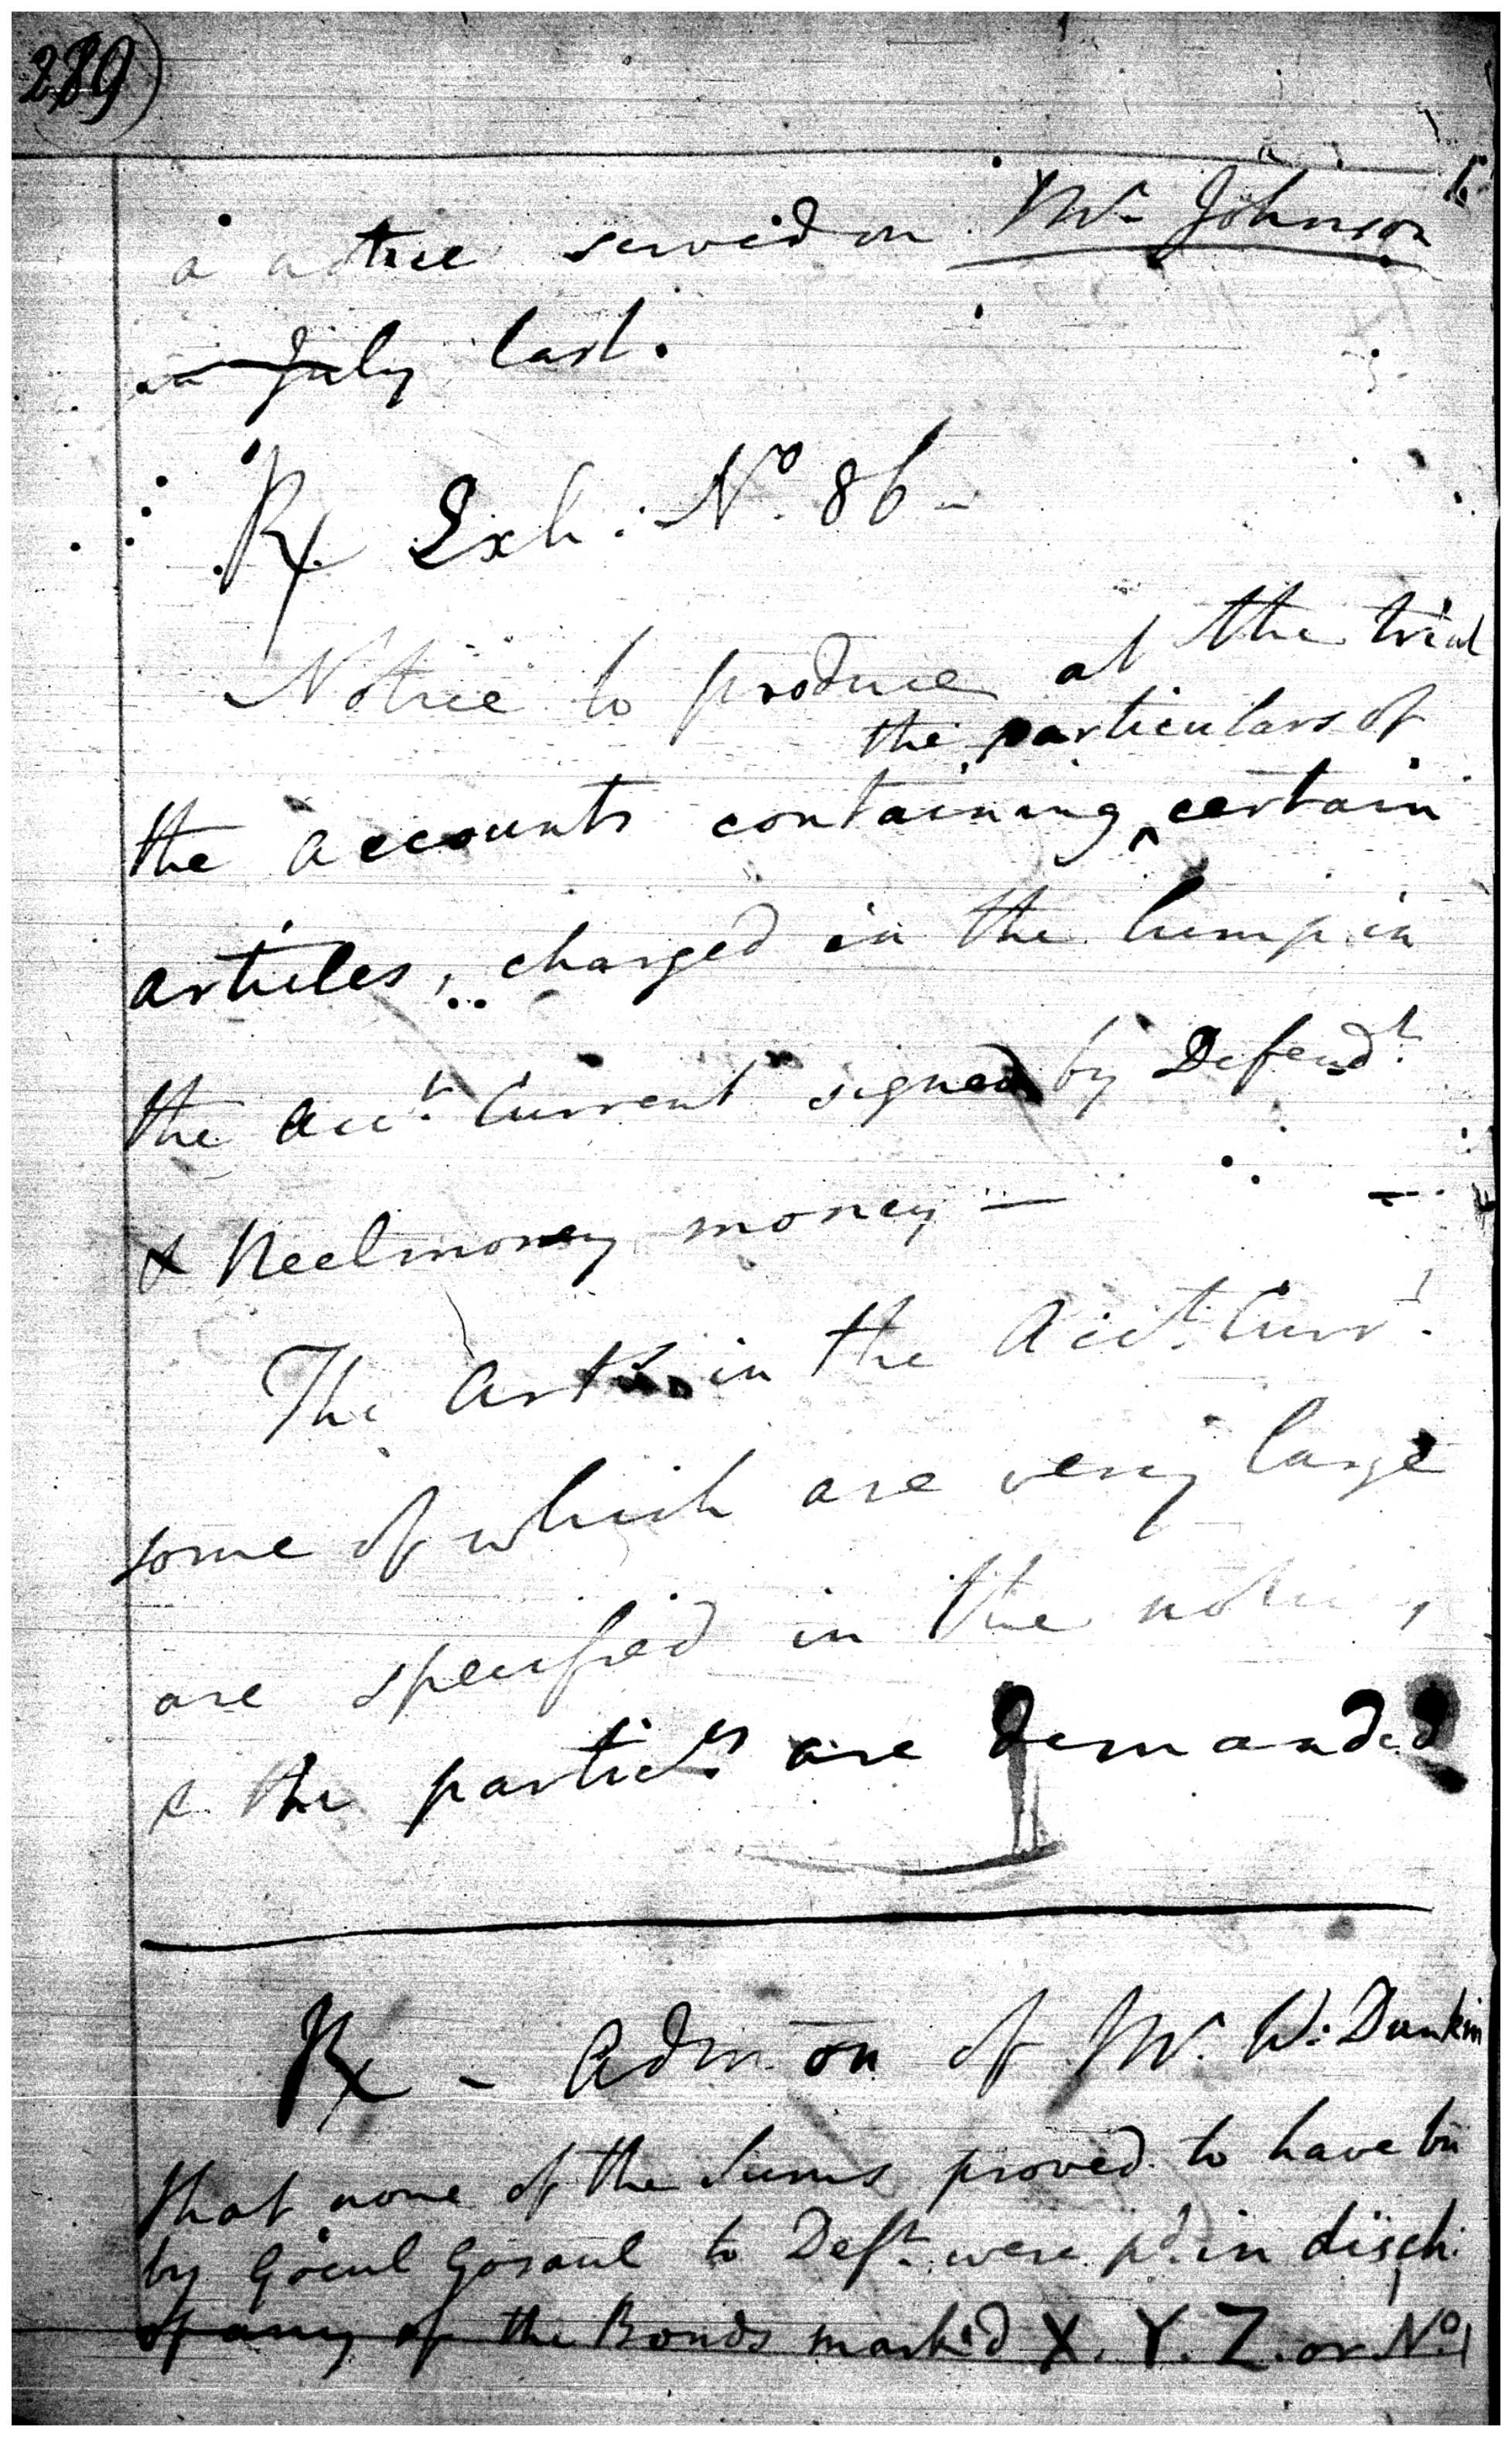 289)
a notice served on Mr. Johnson
in July last.
Rx Exh: No. 86 -
Notice to produce at the trial
the particulars of
the accounts containing ^ certain
articles, charged in the lump in
the Acct. Current signed by Defendt.
& Neelmoney money —
The arts. in the Acct. Curr.t
some of which are very large
are specified in the notice,
& the particrs are demanded
Rx - Admon of Mr. W: Dunkin
that none of the sums proved to have bn
by Gocul Gosaul to Deft. were pd. in disch:
of any of the Bonds mark'd X. Y. Z. or No. 1